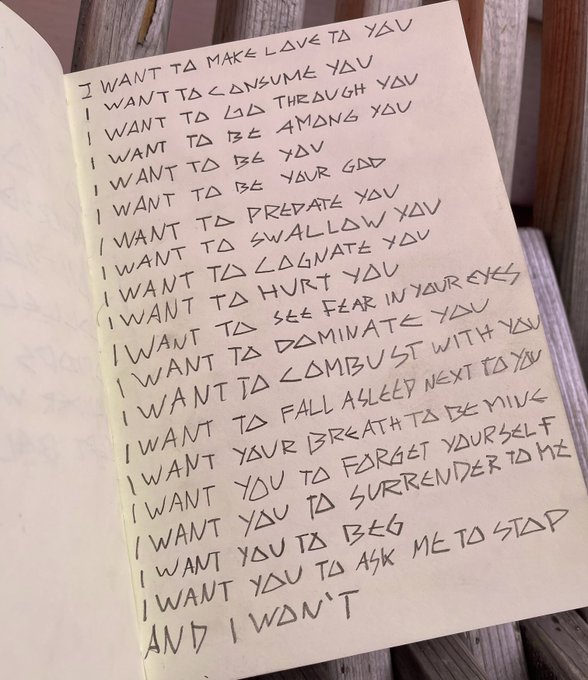 I WANT TO MAKE LOVE TO YOU
I WANT TO CONSUME YOU
I WANT TO GO THROUGH YOU
I WANT TO BE AMONG YOU
I WANT TO BE YOU
I WANT TO BE YOUR GOD
I WANT TO PREDATE YOU
I WANT TO SWALLOW YOU
I WANT TO COGNATE YOU
I WANT TO HURT YOU
I WANT TO SEE FEAR IN YOUR EYES
I WANT TO DOMINATE YOU
I WANT TO COMBUST WITH YOU
I WANT TO FALL ASLEEP NEXT TO YOU
I WANT YOUR BREATH TO BE MINE
I WANT YOU TO FORGET YOURSELF
I WANT YOU TO SURRENDER TO ME
I WANT YOU TO BEG
I WANT YOU TO ASK ME TO STOP
AND I WON'T